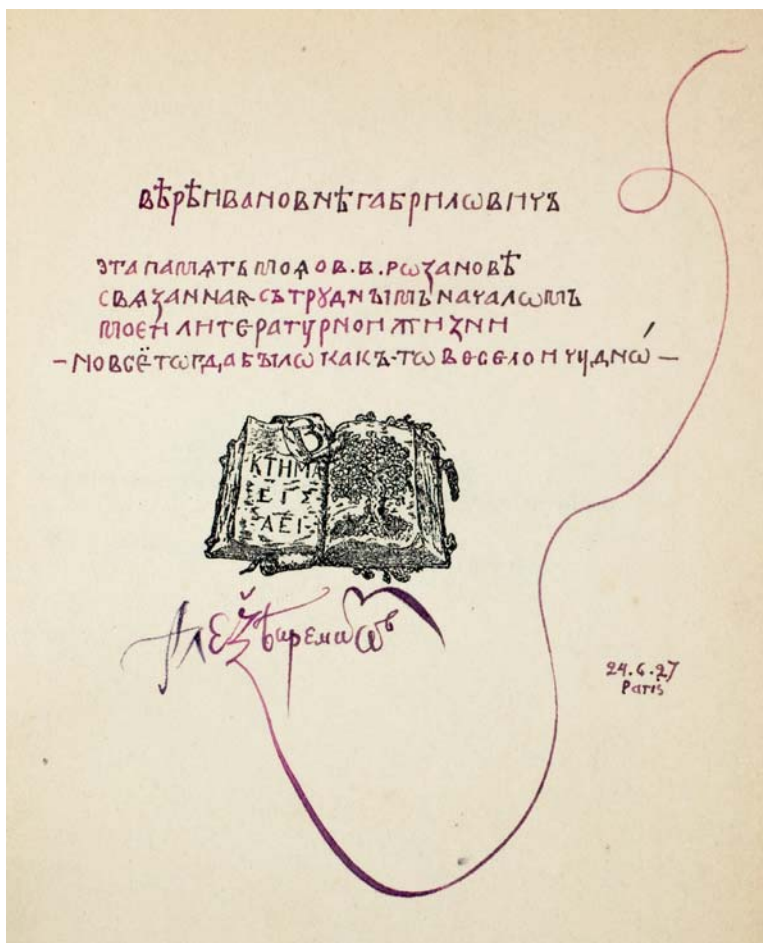 ВѢРѢ ИВАНОВНѢ ГАБРИЛѠВИЧЪ
ЭТА ПАМѦТЬ МОѦ О В. В. РѠЗАНОВѢ
СВѦЗАННАЯ СЪ ТРꙊДНЫМЪ НАЧАЛѠМЪ
МОЕЙ ЛИТЕРАТУРНОЙ ЖИЗНИ
— НО ВСЁ ТѠГДА БЫЛѠ КАКЪ-ТѠ ВЕСЕЛО И ЧУДНѠ́ —
В
ΚΤΗΜΑ
ΕΓΣ
ΑΕΙ
Алеѯѣй Ремиѕѡвъ
24.6.27
Paris